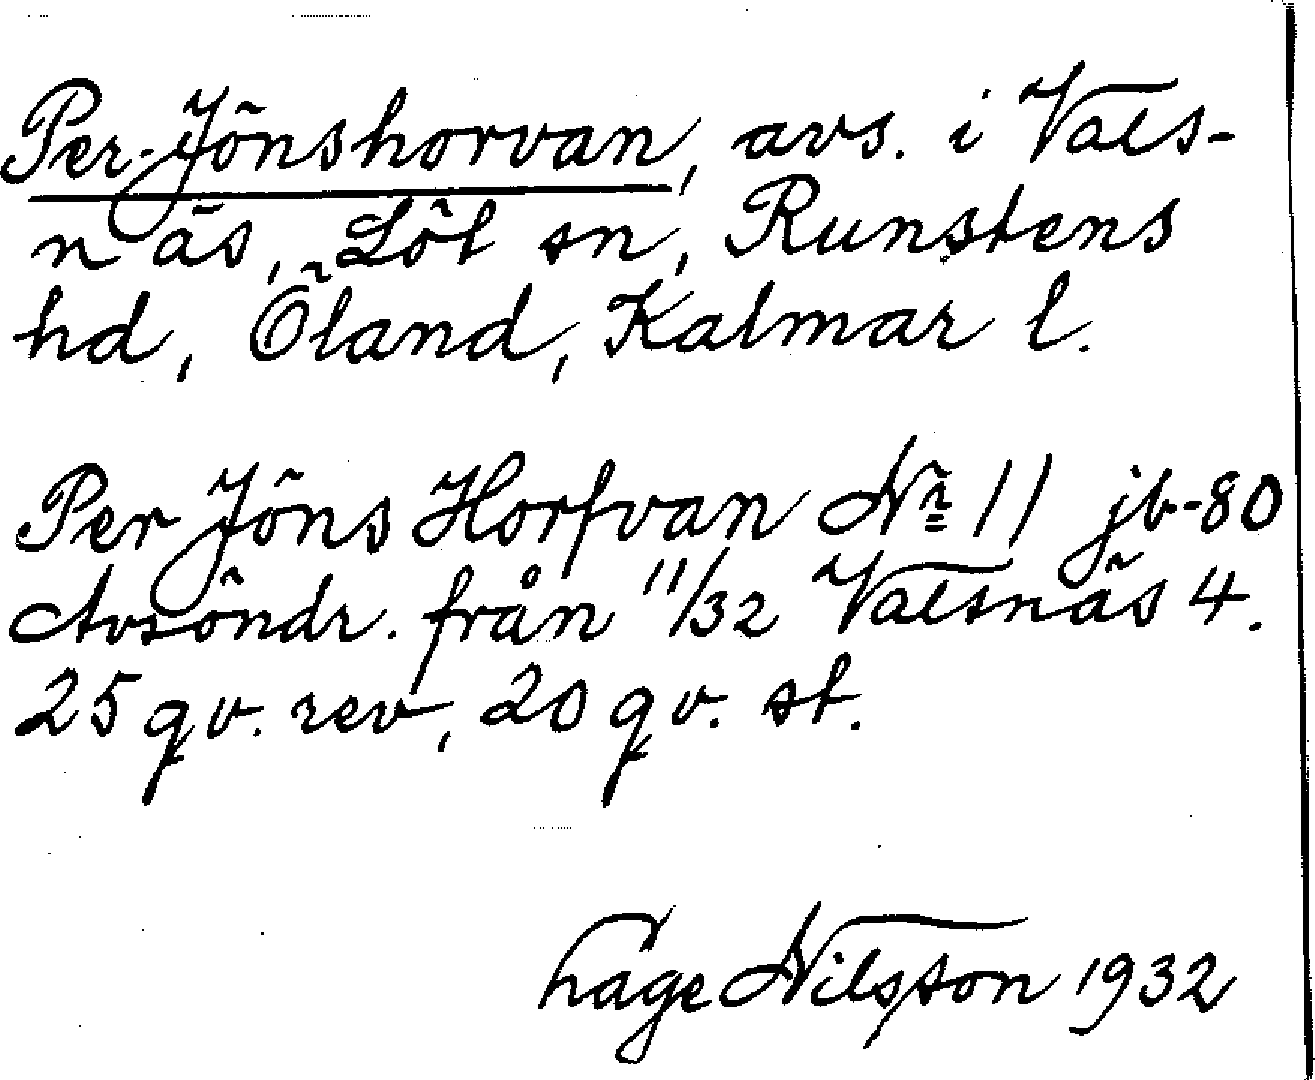 Per-Jönshorvan, avs. i Vals-
näs, Löt sn, Runstens
hd, Öland, Kalmar l.
Per Jöns Horfvan No 11 jb-80
Avsöndr. från 11/32 Valsnäs 4.
25 qv. rev, 20 qv. st.
Hage Nilsson 1932